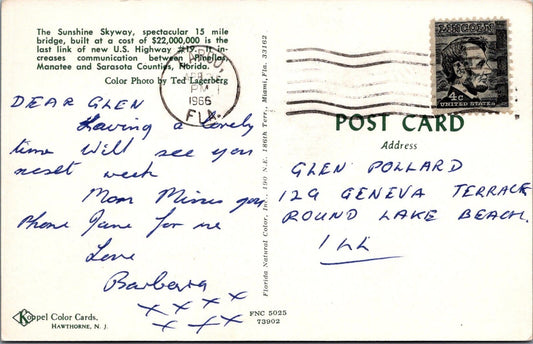 The Sunshine Skyway, spectacular 15 mile
bridge, built at a cost of $22,000,000 is the
last link of new U.S. Highway #19. It in-
creases communication between Pinellas,
Manatee and Sarasota Counties, Florida.
Color Photo by Ted Lagerberg
LARGO,
PM
1966
FLA.
LINCOLN
4c
UNITED STATES
POST CARD
Address
DEAR GLEN
Having a lovely
time Will see you
next week
Mom Misses you
Phone Jane for me
Love
Barbara
x x x x
x x x
GLEN POLLARD
129 GENEVA TERRACE
ROUND LAKE BEACH.
ILL
Florida Natural Color, Inc., 190 N.E. 186th Terr., Miami, Fla. 33162
Koppel Color Cards,
HAWTHORNE, N. J.
FNC 5025
73902